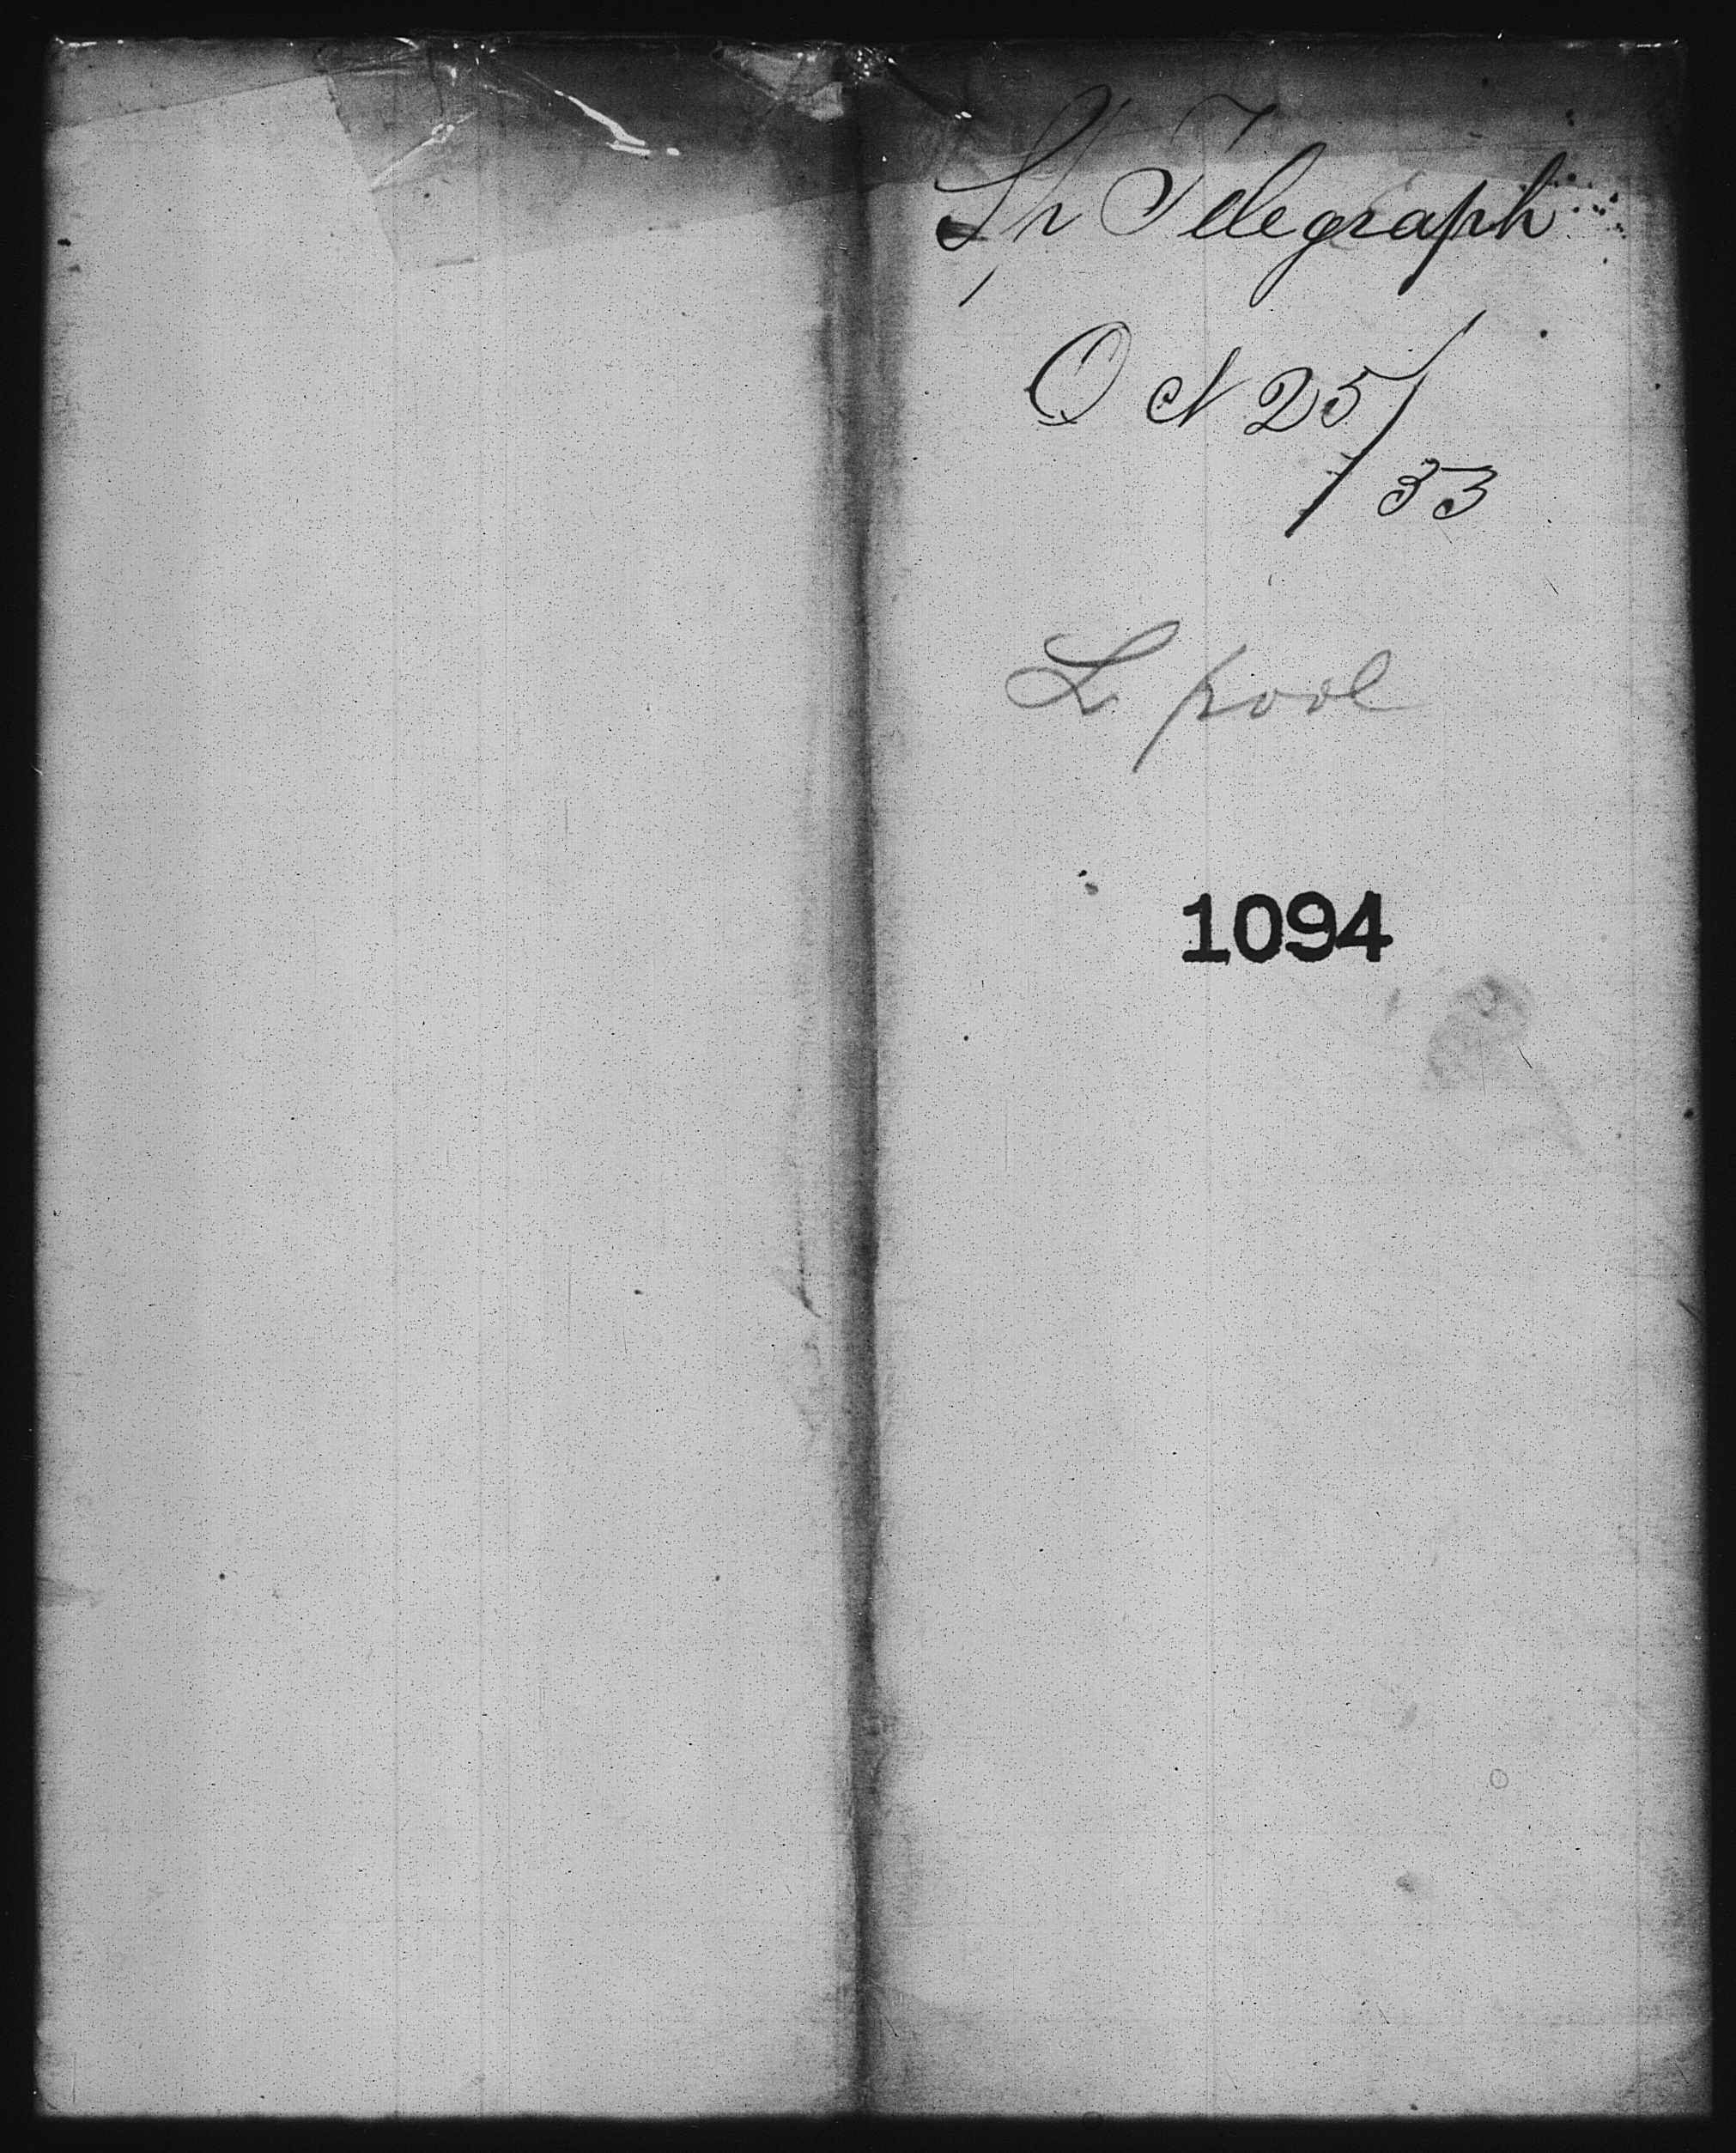 Sh Telegraph
O ct 25/
33
L pool
1094